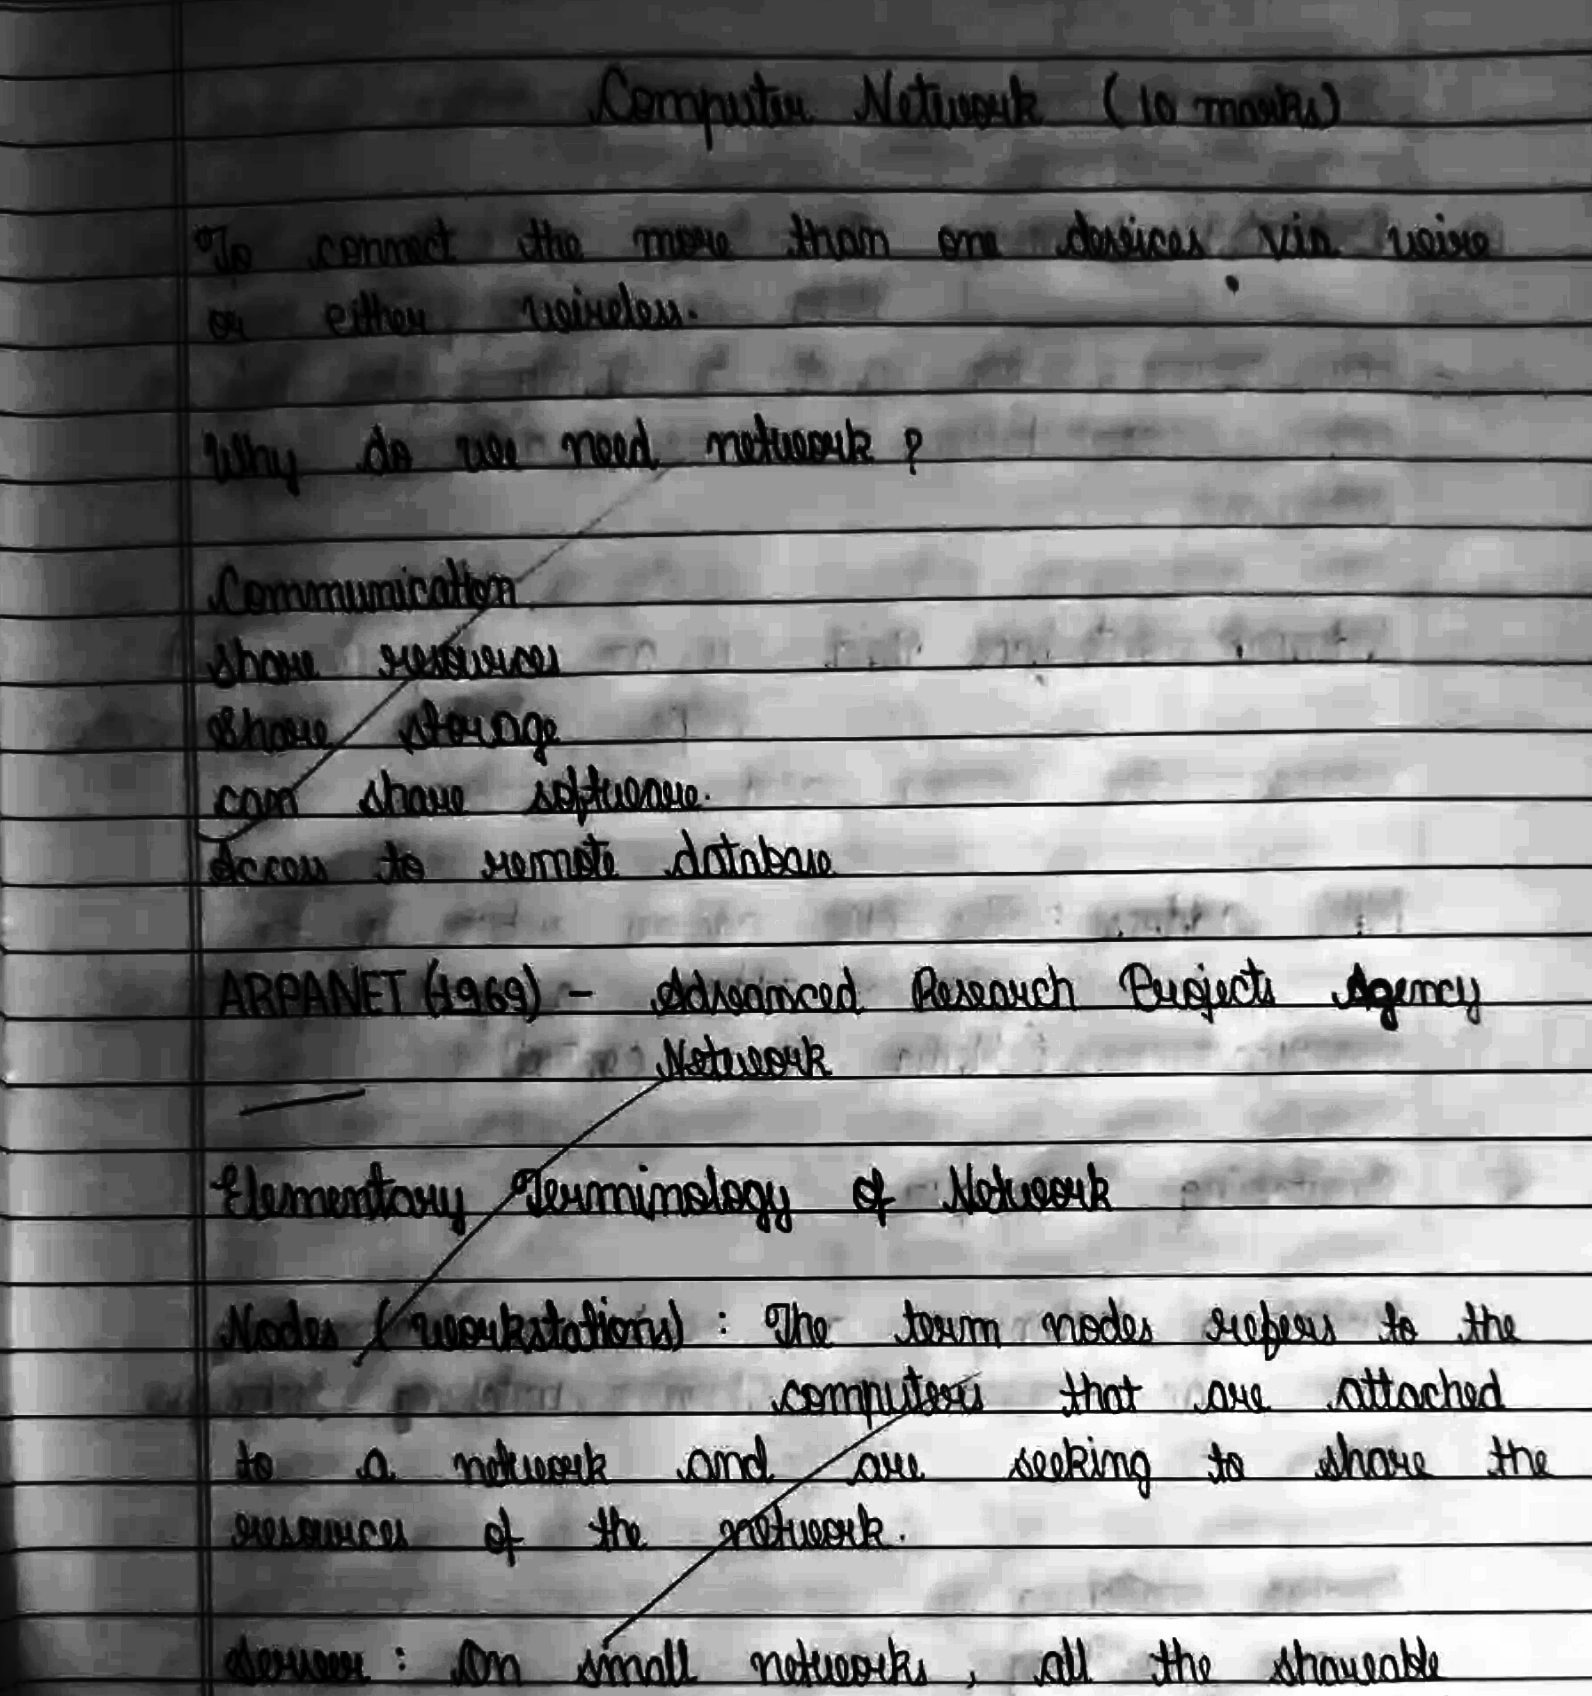 Computer Network (10 marks)
To connect the more than one devices via wire
or either wireless.
Why do we need network ?
Communication
share resources
share storage
can share software.
Access to remote database
ARPANET (1969) - Advanced Research Projects Agency
Network
Elementary Terminology of Network
Nodes (workstations) : The term nodes refers to the
computers that are attached
to a network and are seeking to share the
resources of the network.
Server : On small networks, all the shareable